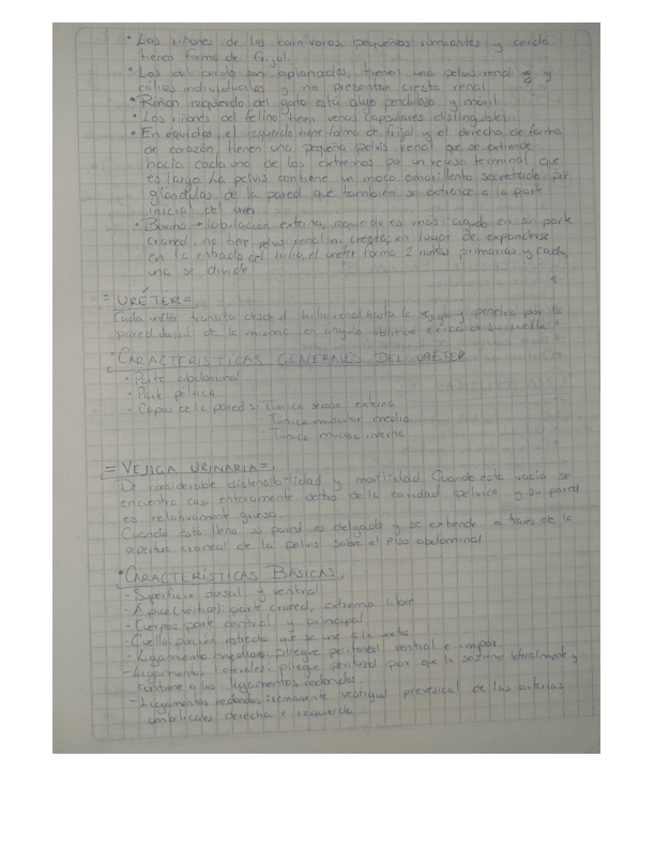 • Los riñones de los carnívoros, pequeños rumiantes y cerdo
tienen forma de frijol.
• Los del cerdo son aplanados, tienen una pelvis renal y
cálices individuales y no presentan cresta renal
• Riñón izquierdo del gato está algo penduloso y móvil
• Los riñones del felino tienen venas capsulares distinguibles
• En équidos, el izquierdo tiene forma de frijol y el derecho de forma
de corazón, tienen una pequeña pelvis renal que se extiende
hacia cada uno de los extremos por un receso terminal que
es largo. La pelvis contiene un moco amarillento secretado por
glándulas de la pared que también se extiende a la parte
inicial del
• Bovino → lobulación externa, izquierdo es más agudo en su parte
craneal, no tiene pelvis renal ni cresta, en lugar de expanderse
en la entrada del hilio, el ureter forma 2 ramas primarias y cada
una se divide
= URÉTER =
Cada uréter transita desde el hilio renal hasta la vejiga y penetra por la
pared dorsal de la misma en ángulo oblicuo cerca de su cuello.
• CARACTERÍSTICAS GENERALES DEL URÉTER
- Parte abdominal
- Parte pélvica
- Capas de la pared: - Túnica serosa externa
- Túnica muscular media
- Túnica mucosa interna
= VEJIGA URINARIA =
De considerable distensibilidad y motilidad. Cuando este vacía se
encuentra casi enteramente dentro de la cavidad pelvica y su pared
es relativamente gruesa.
Cuando está llena su pared es delgada y se extiende a traves de la
apertura craneal de la pelvis sobre el piso abdominal
• CARACTERÍSTICAS BÁSICAS
- Superficie dorsal y ventral
- Apice (vertice): parte craneal, extremo libre
- Cuerpo: parte central y principal
- Cuello: porción estrecha que se une a la uretra
- Ligamento mediano: pliegue peritoneal ventral e impar
- Ligamentos laterales: pliegue peritoneal par que la sostiene lateralmente y
contiene a los ligamentos redondos.
- Ligamentos redondos: remanente vestigial prevesical de las arterias
umbilicales derecha e izquierda